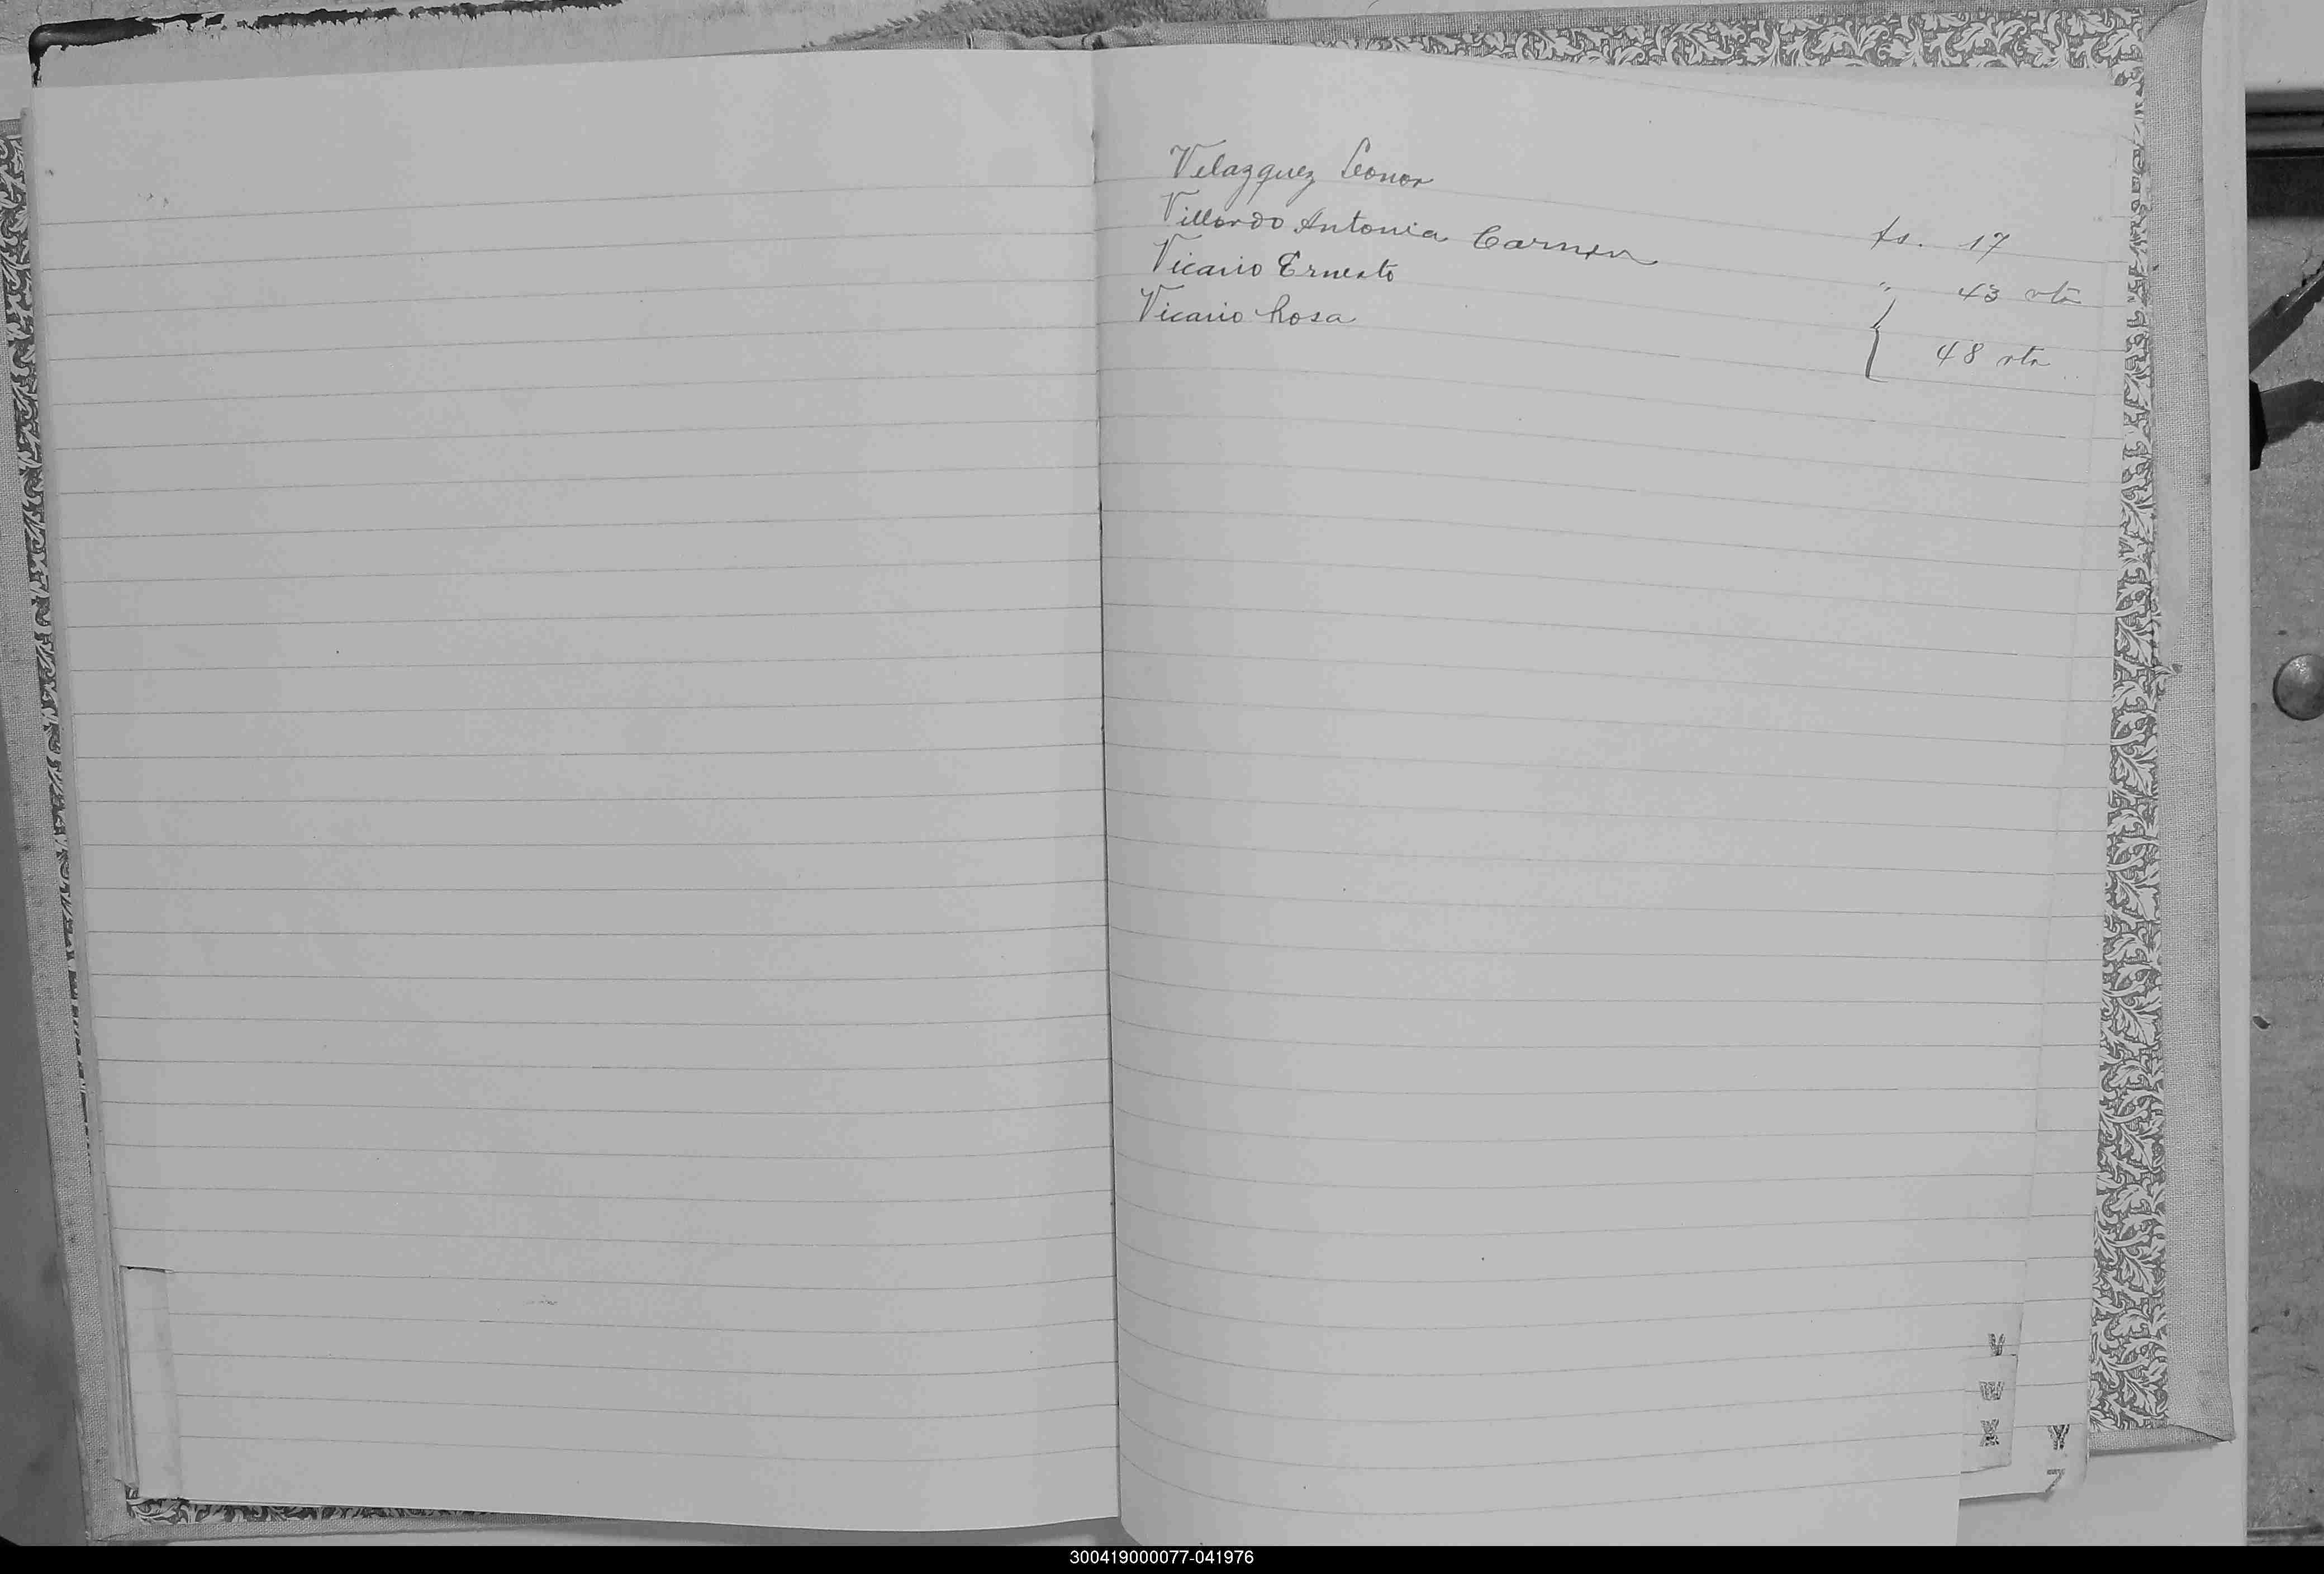 Velazquez Leonor fs. 17
Villordo Antonia Carmen " 43 vta
Vicario Ernesto
Vicario Rosa } 48 vta
V
W
X Y
Z
300419000077-041976